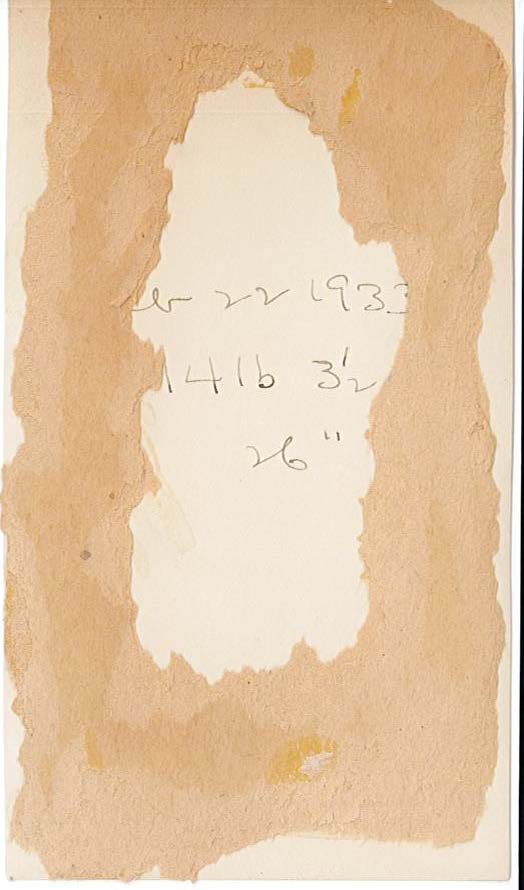 b 22 1933
14 lb 3½
26"